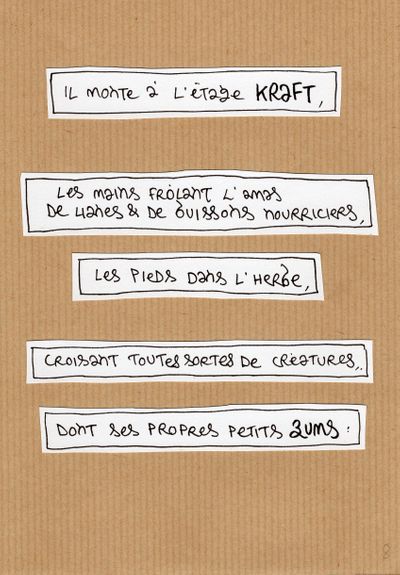 Il monte à l'étage KRAFT,
Les mains frôlant l'amas
de lianes & de buissons nourriciers,
Les pieds dans l'herbe,
Croisant toutes sortes de créatures,
Dont ses propres petits zums :
8